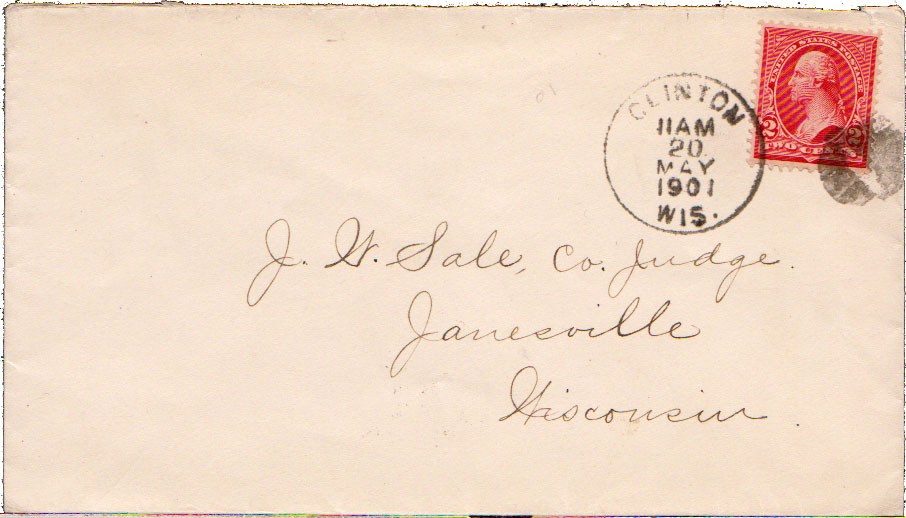 UNITED STATES POSTAGE
2 2
TWO CENTS
CLINTON
11AM
20
MAY
1901
WIS.
J. W. Sale, Co. Judge.
Janesville
Wisconsin.